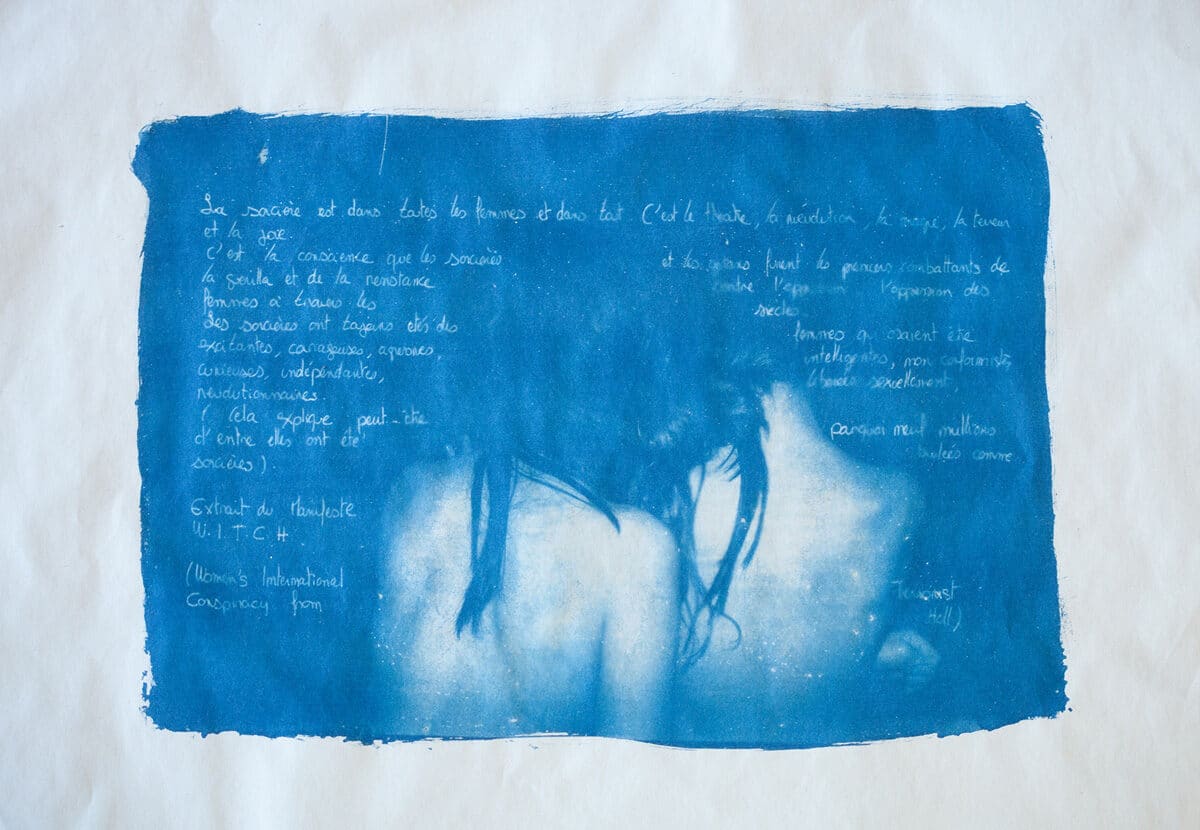 La sorcière est dans toutes les femmes et dans tout. C'est le théatre, la révolution, la magie, la terreur
et la joie.
C'est la conscience que les sorcières et les gitans furent les premiers combattants de
la guerilla et de la resistance contre l'oppression l'oppression des
femmes à travers les siècles.
Les sorcières ont toujours étés des femmes qui osaient être
excitantes, courageuses, agressives, intelligentes, non conformistes
curieuses, indépendantes, liberées sexuellement,
révolutionnaires.
( Cela explique peut-être pourquoi neuf millions
d'entre elles ont été brulées comme
sorcières).
Extrait du Manifeste
W.I.T.C.H.
(Women's International Terrorist
Conspiracy from Hell)